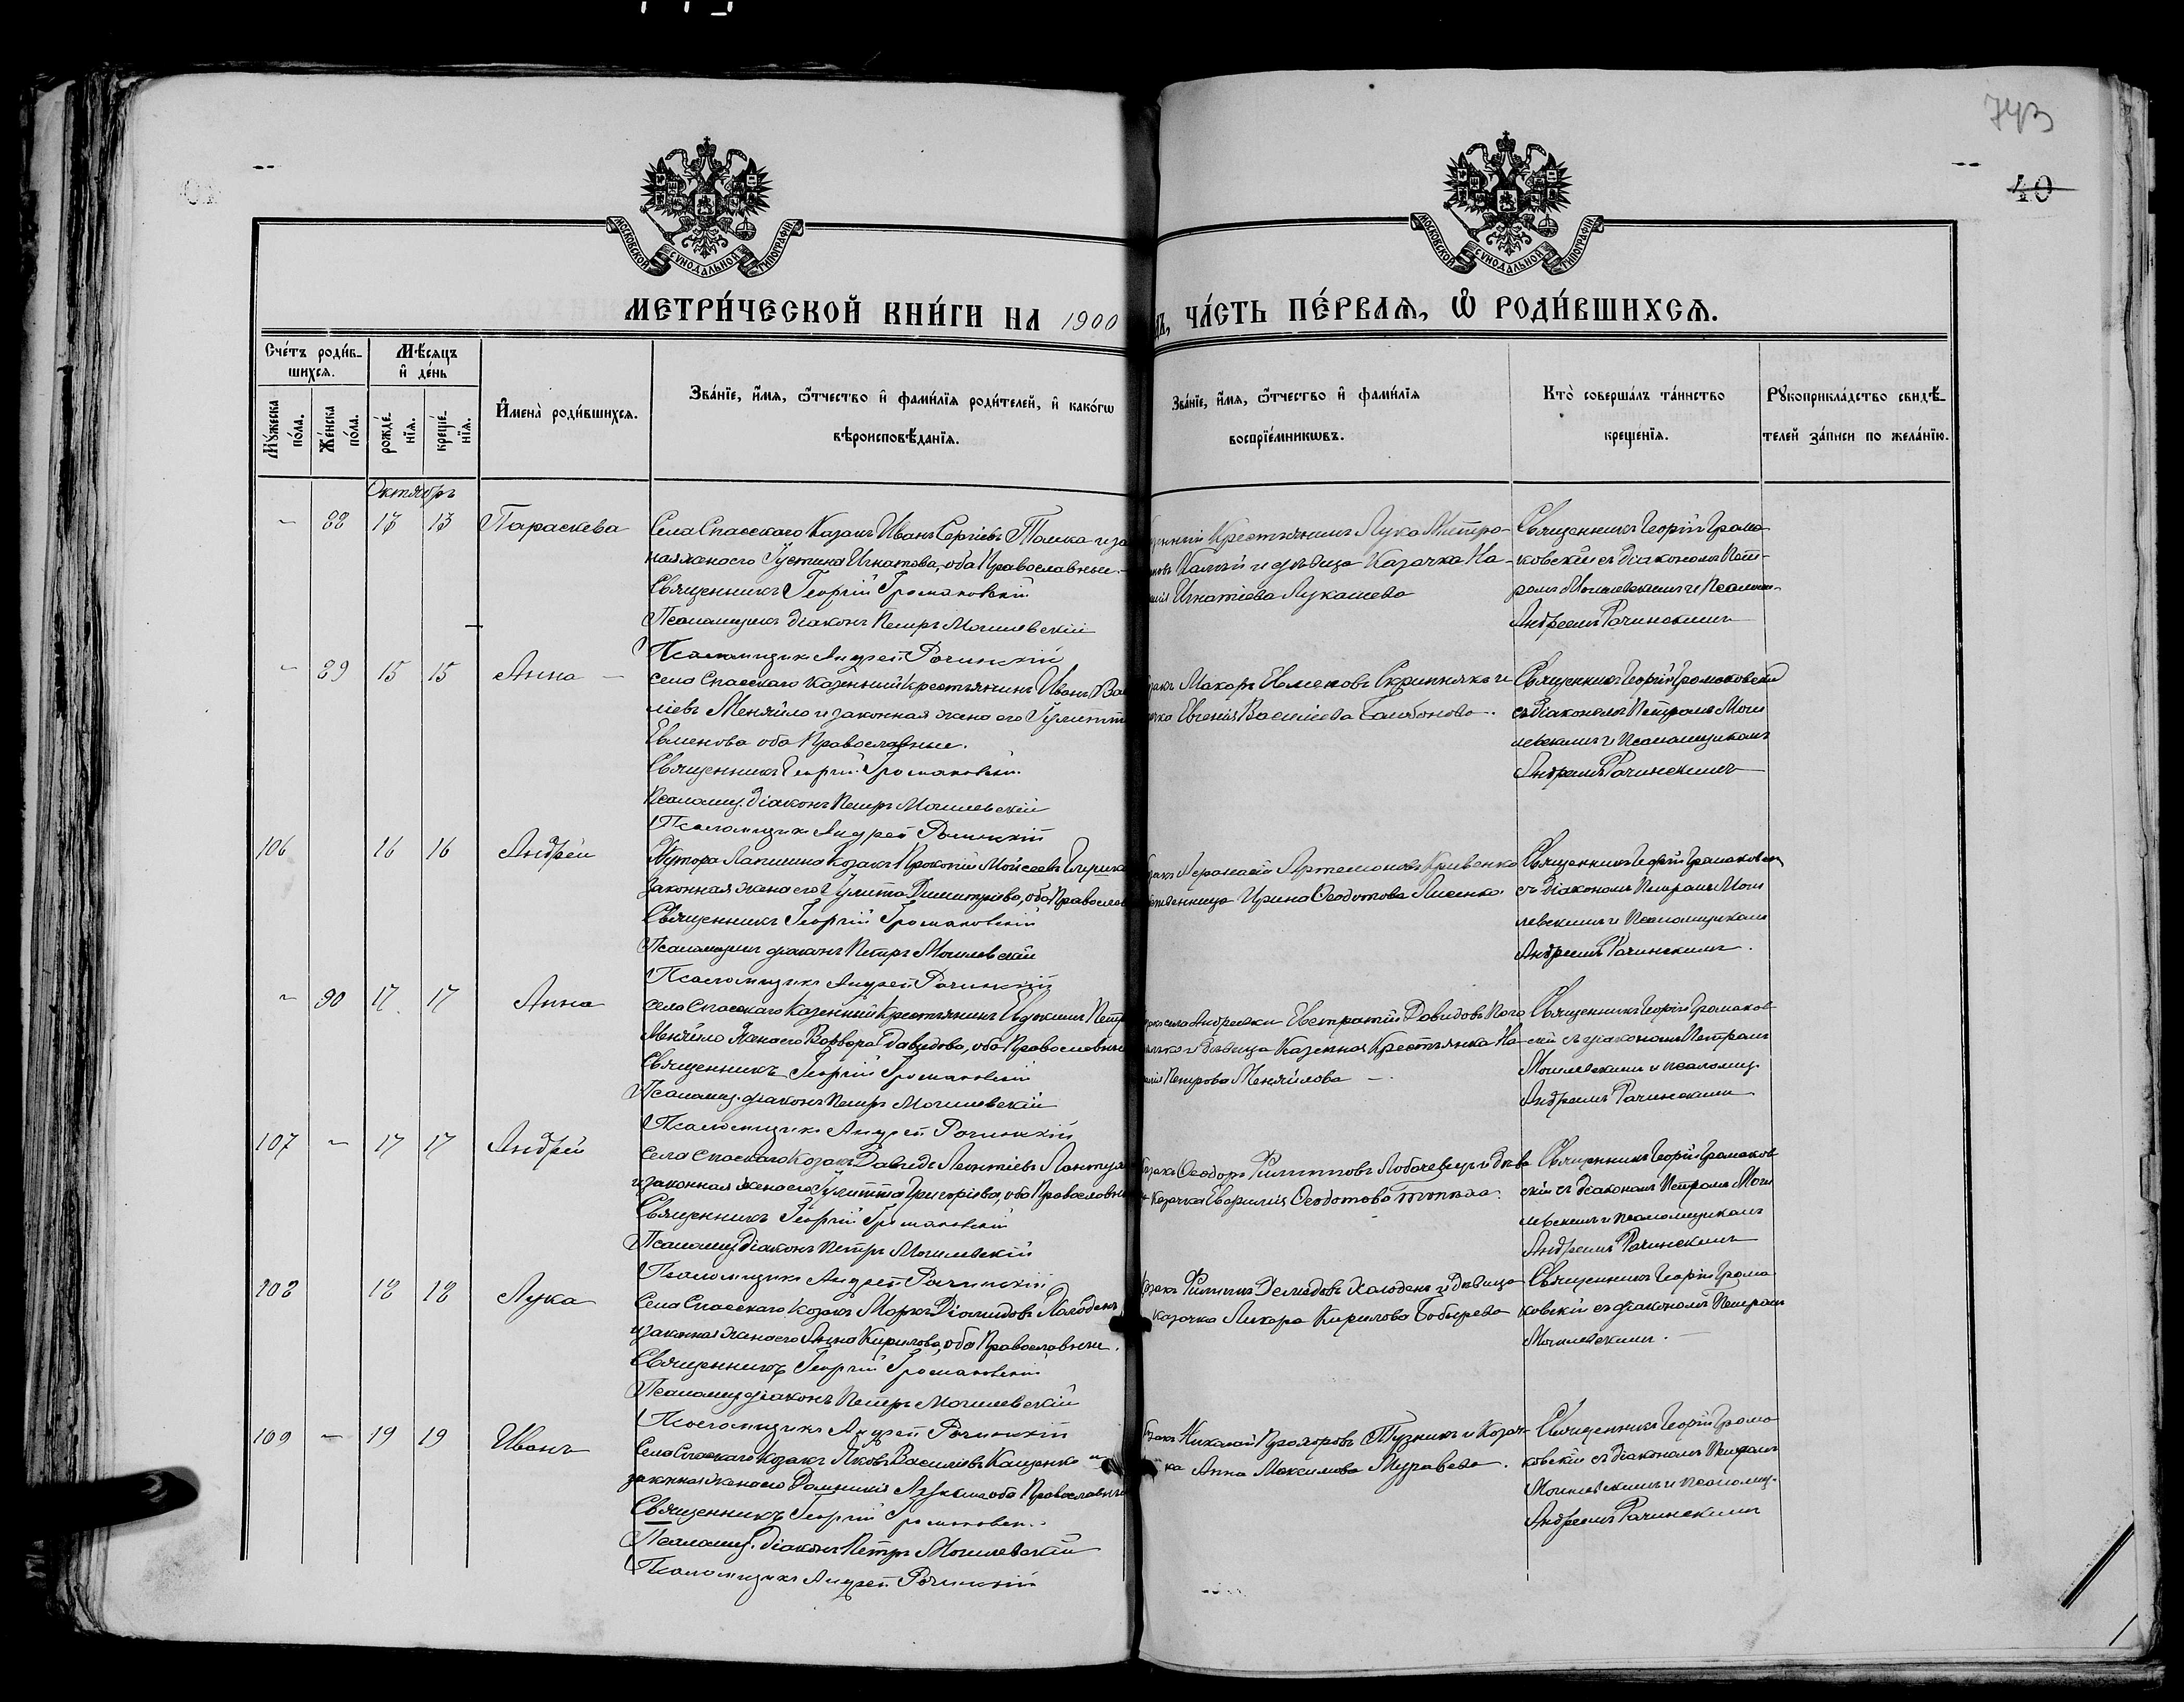 743
40
МОСКОВСКОЙ СѴНОДАЛЬНОЙ ТИПОГРАФІИ
МОСКОВСКОЙ СѴНОДАЛЬНОЙ ТИПОГРАФІИ
МЕТРИ́ЧЕСКОЙ КНИ́ГИ НА 1900
ЧА́СТЬ ПЕ́РВАѦ, Ѿ РОДИ́ВШИХСѦ.
Сче́тъ роди́в-
шихсѧ.
Мѣ́сѧцъ
и҆ де́нь
Мꙋ́жеска
по́ла.
Же́нска
по́ла.
рожде́-
нїѧ.
креще́-
нїѧ.
И҆мена̀ роди́вшихсѧ.
Зва́нїе, и҆́мѧ, ѻ҆́тчество и҆ фами́лїѧ роди́телей, и҆ како́гѡ
вѣроисповѣ́данїѧ.
Зва́нїе, и҆́мѧ, ѻ҆́тчество и҆ фами́лїѧ
воспрїе́мникѡвъ.
Кто̀ соверша́лъ та́инство
креще́нїѧ.
Рꙋкоприкла́дство свидѣ́-
телей за́писи по жела́нїю.
Октябрь
88 13 13 Параскева
Села Спасскаго Казакъ Иванъ Сергіевъ
Іустина Игнатова, оба Православные.
Священникъ Георгій Громаковскій
Псаломщикъ діаконъ Петръ Могилевскій
Псаломщикъ Андрей Рачинскій
Крестьянинъ Лука Митро-
и дѣвица Казачка На-
Игнатіева Лукашева
Священникъ Георгій Грома-
ковскій съ діакономъ Пет-
ромъ Могилевскимъ и Псаломщ-
Андреемъ Рачинскимъ
89 15 15 Анна
Села Спасскаго казенный крестьянинъ Иванъ Ва
Меняйло и законная жена его
Евменова оба Православные.
Священникъ Георгій Громаковскій
Псаломщ. діаконъ Петръ Могилевскій
Псаломщикъ Андрей Рачинскій
Макаръ Евменовъ Скрипняка и
Евгенія Василіева
Священникъ Георгій Громаковскій
съ діакономъ Петромъ Моги
левскимъ и Псаломщикомъ
Андреемъ Рачинскимъ
106 16 16 Андрей
Хутора Казакъ Прокопій Мойсеевъ
законная жена его Димитріева, оба Православ
Священникъ Георгій Громаковскій
Псаломщикъ діаконъ Петръ Могилевскій
Псаломщикъ Андрей Рачинскій
Артемоновъ Кривенко
Ирина Ѳеодотова Лисенко
Священникъ Георгій Громаковск
съ діакономъ Петромъ Моги
левскимъ и Псаломщикомъ
Андреемъ Рачинскимъ.
90 17 17 Анна
Села Спасскаго Казенный Крестьянинъ Евдокимъ Петр
Меняйло Жена его Варвара Давидова, оба Православные
Священникъ Георгій Громаковскій
Псаломщ. діаконъ Петръ Могилевскій
Псаломщикъ Андрей Рачинскій
села Андреевки Евстратій Давидовъ
дѣвица Казенная Крестьянка На-
Петрова Меняйлова
Священникъ Георгій Громаков
скій съ діакономъ Петромъ
Могилевскимъ и псаломщ.
Андреемъ Рачинскимъ
107 17 17 Андрей
Села Спасскаго Казакъ Давидъ Леонтіевъ
и законная жена его Григоріева, оба Православны
Священникъ Георгій Громаковскій
Псаломщ. діаконъ Петръ Могилевскій
Псаломщикъ Андрей Рачинскій
Ѳеодоръ Филипповъ и дѣви
Казачка Евфимія Ѳеодотова
Священникъ Георгій Громаков
скій съ діакономъ Петромъ Моги
левскимъ и псаломщикомъ
Андреемъ Рачинскимъ
108 18 18 Лука
Села Спасскаго Казакъ Марко Діомидовъ
и законная жена его Анна Кирилова, оба Православные.
Священникъ Георгій Громаковскій
Псаломщ. діаконъ Петръ Могилевскій
Псаломщикъ Андрей Рачинскій
Филиппъ и Дѣвица
Казачка Кирилова Бобырева
Священникъ Георгій Грома
ковскій съ діакономъ Петромъ
Могилевскимъ.
109 19 19 Иванъ
Села Спасскаго Казакъ Яковъ Василіевъ Кащенко и
законная жена его оба Православны
Священникъ Георгій Громаковск.
Псаломщ. діаконъ Петръ Могилевскій
Псаломщикъ Андрей Рачинскій
Николай Прохоровъ и Казач
ка Анна Максимова Муравева.
Священникъ Георгій Грома
ковскій съ діакономъ Петромъ
Могилевскимъ и псаломщ.
Андреемъ Рачинскимъ